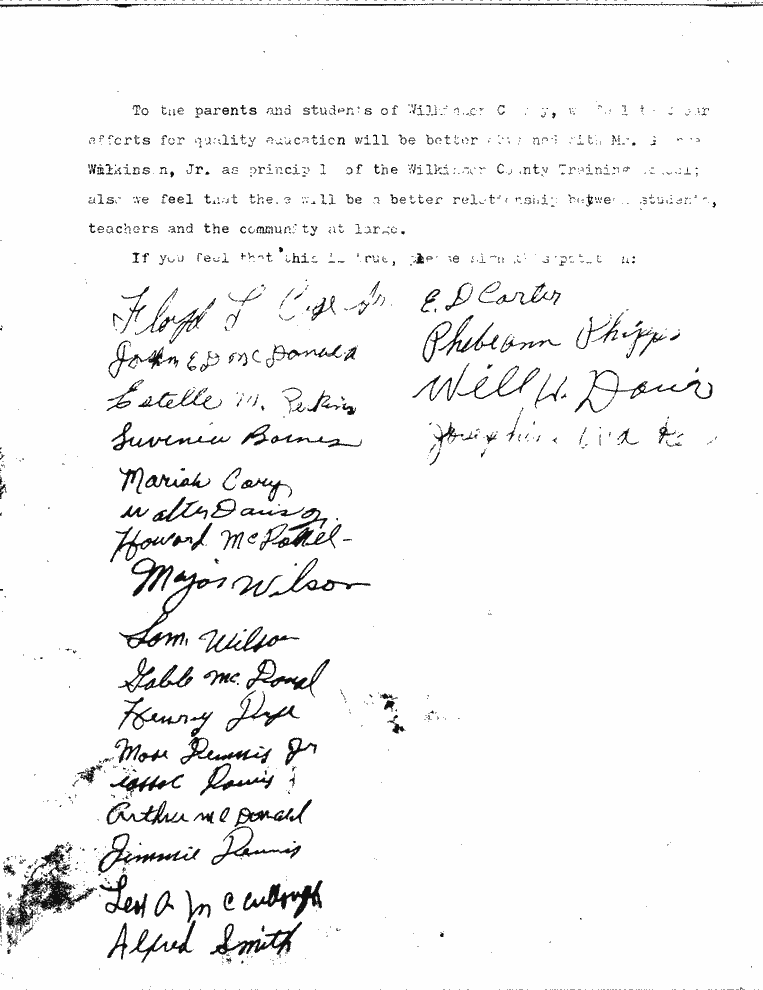 To the parents and students of Wilkinson County, we feel that our
efforts for quality education will be better with Mr.
Wilkinson, Jr. as principal of the Wilkinson County Training School;
also we feel that there will be a better relationship between students,
teachers and the community at large.
If you feel that this is true, please sign this petition:
Floyd L Jr. E. D Carter
John E D McDonald Phebeann Phipps
Estelle M. Perkins Will H. Davis
Luvenia Barnes Josephine
Mariah Cary
Walter Davis Jr.
Howard
Major Wilson
Sam Wilson
Gable Mc. Donal
Henry
Mose Dennis Jr
Davis
Arthur McDonald
Jimmie Dennis
A McCullough
Alfred Smith